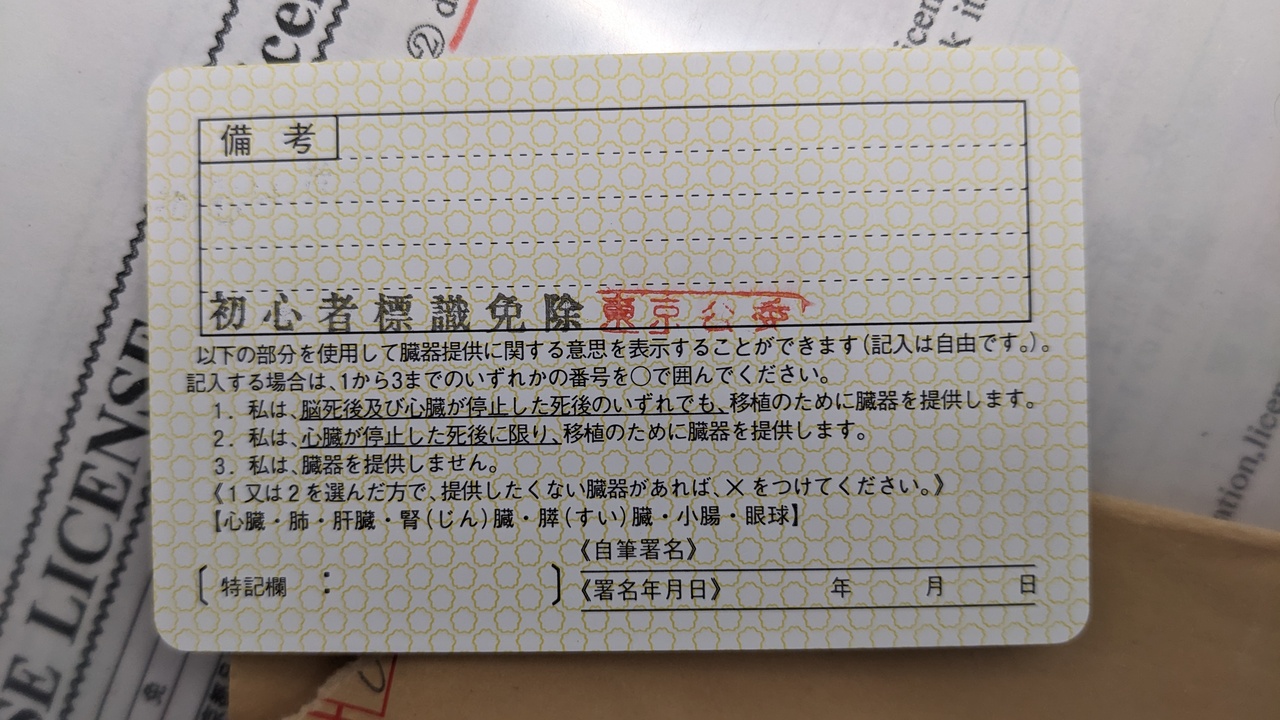 ② d
icen
k it
備考
初心者標識免除 東京公委
以下の部分を使用して臓器提供に関する意思を表示することができます(記入は自由です。)。
記入する場合は、1から3までのいずれかの番号を○で囲んでください。
1. 私は、脳死後及び心臓が停止した死後のいずれでも、移植のために臓器を提供します。
2. 私は、心臓が停止した死後に限り、移植のために臓器を提供します。
3. 私は、臓器を提供しません。
《1又は2を選んだ方で、提供したくない臓器があれば、×をつけてください。》
【心臓・肺・肝臓・腎(じん)臓・膵(すい)臓・小腸・眼球】
《自筆署名》
〔特記欄 : 〕
《署名年月日》 年 月 日
SE LICENSE
ation,licen
免